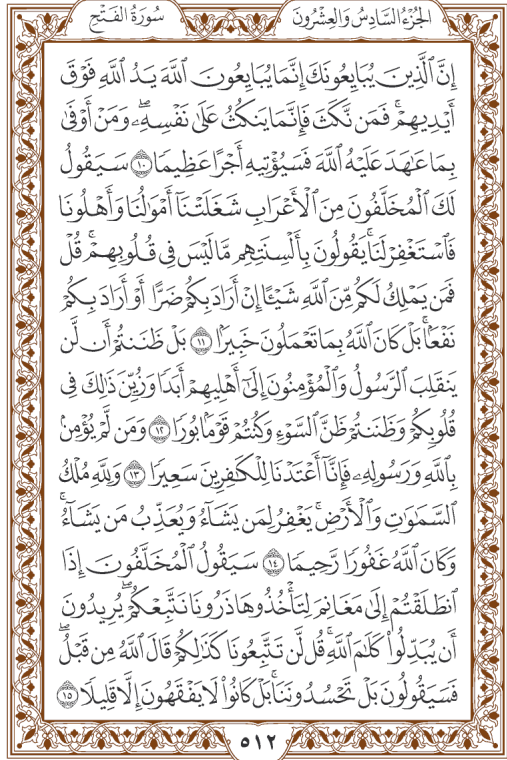 سُورَةُ الفَتْحِ
الجُزْءُ السَّادِسُ وَالعِشْرُونَ
إِنَّ ٱلَّذِينَ يُبَايِعُونَكَ إِنَّمَا يُبَايِعُونَ ٱللَّهَ يَدُ ٱللَّهِ فَوْقَ
أَيْدِيهِمْۚ فَمَن نَّكَثَ فَإِنَّمَا يَنكُثُ عَلَىٰ نَفْسِهِۦۖ وَمَنْ أَوْفَىٰ
بِمَا عَٰهَدَ عَلَيْهُ ٱللَّهَ فَسَيُؤْتِيهِ أَجْرًا عَظِيمًا ١٠ سَيَقُولُ
لَكَ ٱلْمُخَلَّفُونَ مِنَ ٱلْأَعْرَابِ شَغَلَتْنَآ أَمْوَٰلُنَا وَأَهْلُونَا
فَٱسْتَغْفِرْ لَنَاۚ يَقُولُونَ بِأَلْسِنَتِهِم مَّا لَيْسَ فِي قُلُوبِهِمْۚ قُلْ
فَمَن يَمْلِكُ لَكُم مِّنَ ٱللَّهِ شَيْـًٔا إِنْ أَرَادَ بِكُمْ ضَرًّا أَوْ أَرَادَ بِكُمْ
نَفْعًۢاۚ بَلْ كَانَ ٱللَّهُ بِمَا تَعْمَلُونَ خَبِيرًۢا ١١ بَلْ ظَنَنتُمْ أَن لَّن
يَنقَلِبَ ٱلرَّسُولُ وَٱلْمُؤْمِنُونَ إِلَىٰٓ أَهْلِيهِمْ أَبَدًا وَزُيِّنَ ذَٰلِكَ فِي
قُلُوبِكُمْ وَظَنَنتُمْ ظَنَّ ٱلسَّوْءِ وَكُنتُمْ قَوْمًۢا بُورًا ١٢ وَمَن لَّمْ يُؤْمِنۢ
بِٱللَّهِ وَرَسُولِهِۦ فَإِنَّآ أَعْتَدْنَا لِلْكَٰفِرِينَ سَعِيرًا ١٣ وَلِلَّهِ مُلْكُ
ٱلسَّمَٰوَٰتِ وَٱلْأَرْضِۚ يَغْفِرُ لِمَن يَشَآءُ وَيُعَذِّبُ مَن يَشَآءُۚ
وَكَانَ ٱللَّهُ غَفُورًا رَّحِيمًا ١٤ سَيَقُولُ ٱلْمُخَلَّفُونَ إِذَا
ٱنطَلَقْتُمْ إِلَىٰ مَغَانِمَ لِتَأْخُذُوهَا ذَرُونَا نَتَّبِعْكُمْۖ يُرِيدُونَ
أَن يُبَدِّلُوا۟ كَلَٰمَ ٱللَّهِۚ قُل لَّن تَتَّبِعُونَا كَذَٰلِكُمْ قَالَ ٱللَّهُ مِن قَبْلُۖ
فَسَيَقُولُونَ بَلْ تَحْسُدُونَنَاۚ بَلْ كَانُوا۟ لَا يَفْقَهُونَ إِلَّا قَلِيلًا ١٥
٥١٢